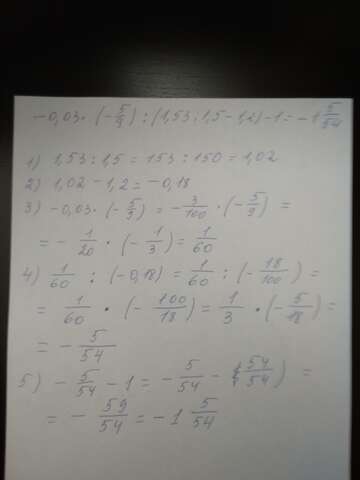 -0,03·(-5/9):(1,53:1,5-1,2)-1=-1 5/54
1) 1,53:1,5=153:150=1,02
2) 1,02-1,2=-0,18
3) -0,03·(-5/9)=-3/100·(-5/9)=
=-1/20·(-1/3)=1/60
4) 1/60:(-0,18)=1/60:(-18/100)=
=1/60·(-100/18)=1/3·(-5/18)=
=-5/54
5) -5/54-1=-5/54-(54/54)=
=-59/54=-1 5/54